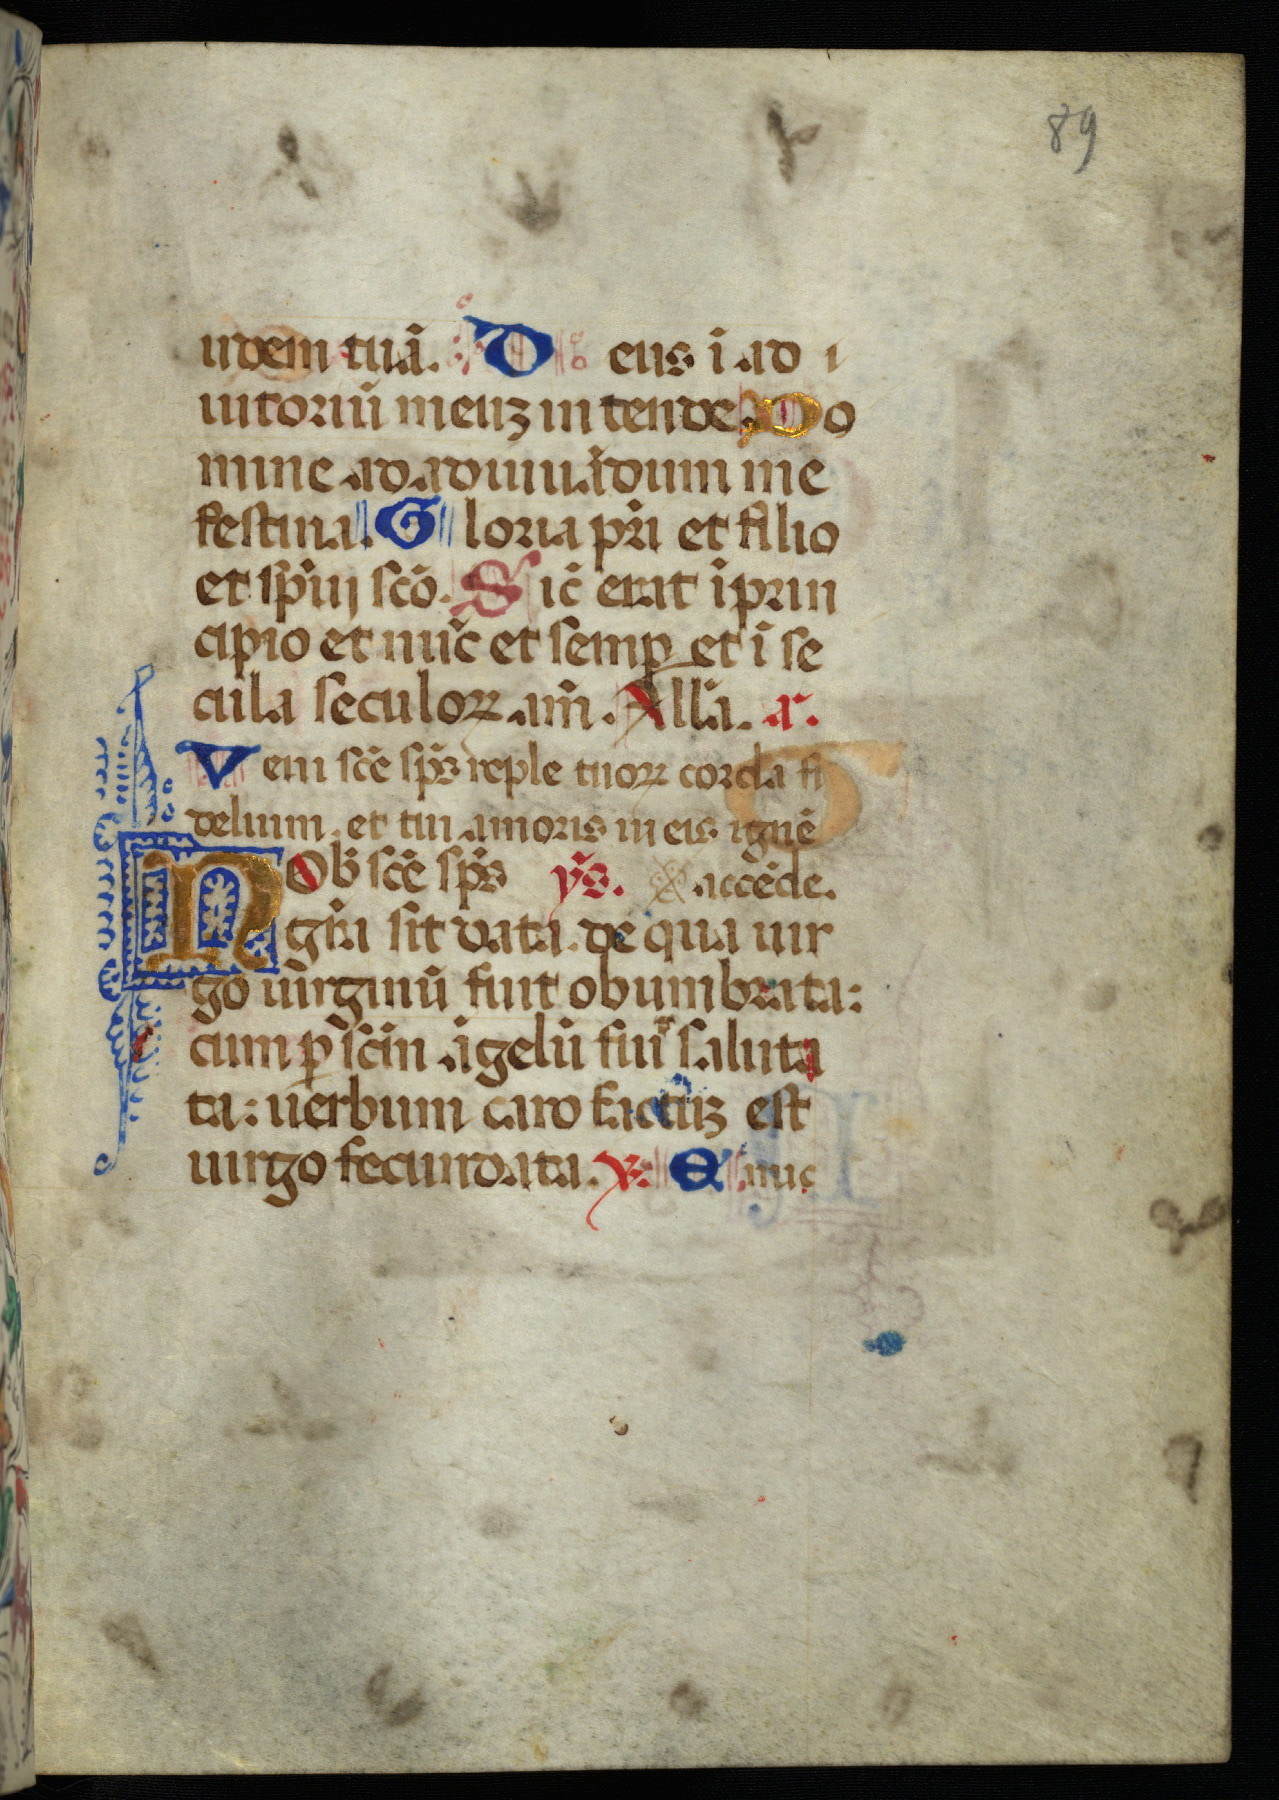 89
udem tuā. Deus ī ad i
iutoriū meuz intende. Do
mine ad adiuuādum me
festina. Gloria pr̄i et filio
et sp̄iu sc̄o. Sic̄ erat īprin
cipio et nūc et semꝑ et ī se
cula seculoꝝ am̄. All̄a. a.
Veni sc̄e sp̄s reple tuoꝝ corda fi
delium. et tui amoris in eis ignē
Nob̄ sc̄e sp̄s ẏs. accēde.
gr̄a sit data. de qua uir
go uirginū fuit obumbrata:
cum ꝑ sc̄m āgelū fuit saluta
ta: uerbum caro factūz est
uirgo fecundata. ℣. Et nuc